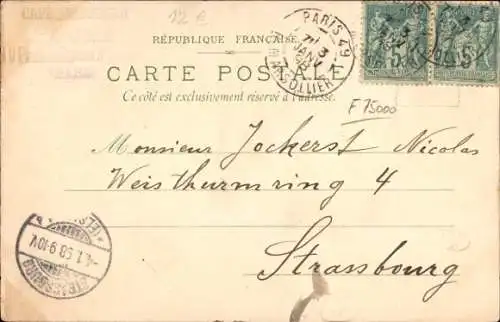 12 €
RÉPUBLIQUE FRANÇAISE
CARTE POSTALE
Ce côté est exclusivement réservé à l'adresse.
PARIS 49
JANV
MARSOLLIER
F 75000
Monsieur Jockerst Nicolas
Weisthurmring 4
Strassbourg
STRASSBURG
-4.1.98.9-10V.